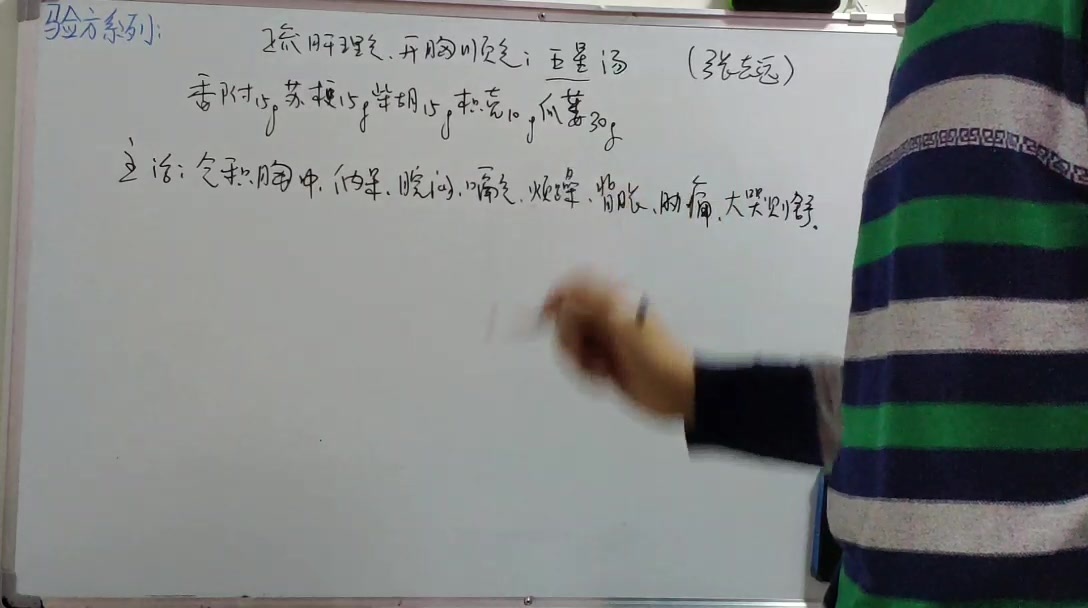 验方系列:
疏肝理气、开胸顺气; 五星汤 (张志远)
香附15g 苏梗15g 柴胡15g 枳壳10g 瓜蒌30g
主治: 气积胸中、纳呆、脘闷、嗝气、烦躁、背胀、胁痛、大哭则舒.